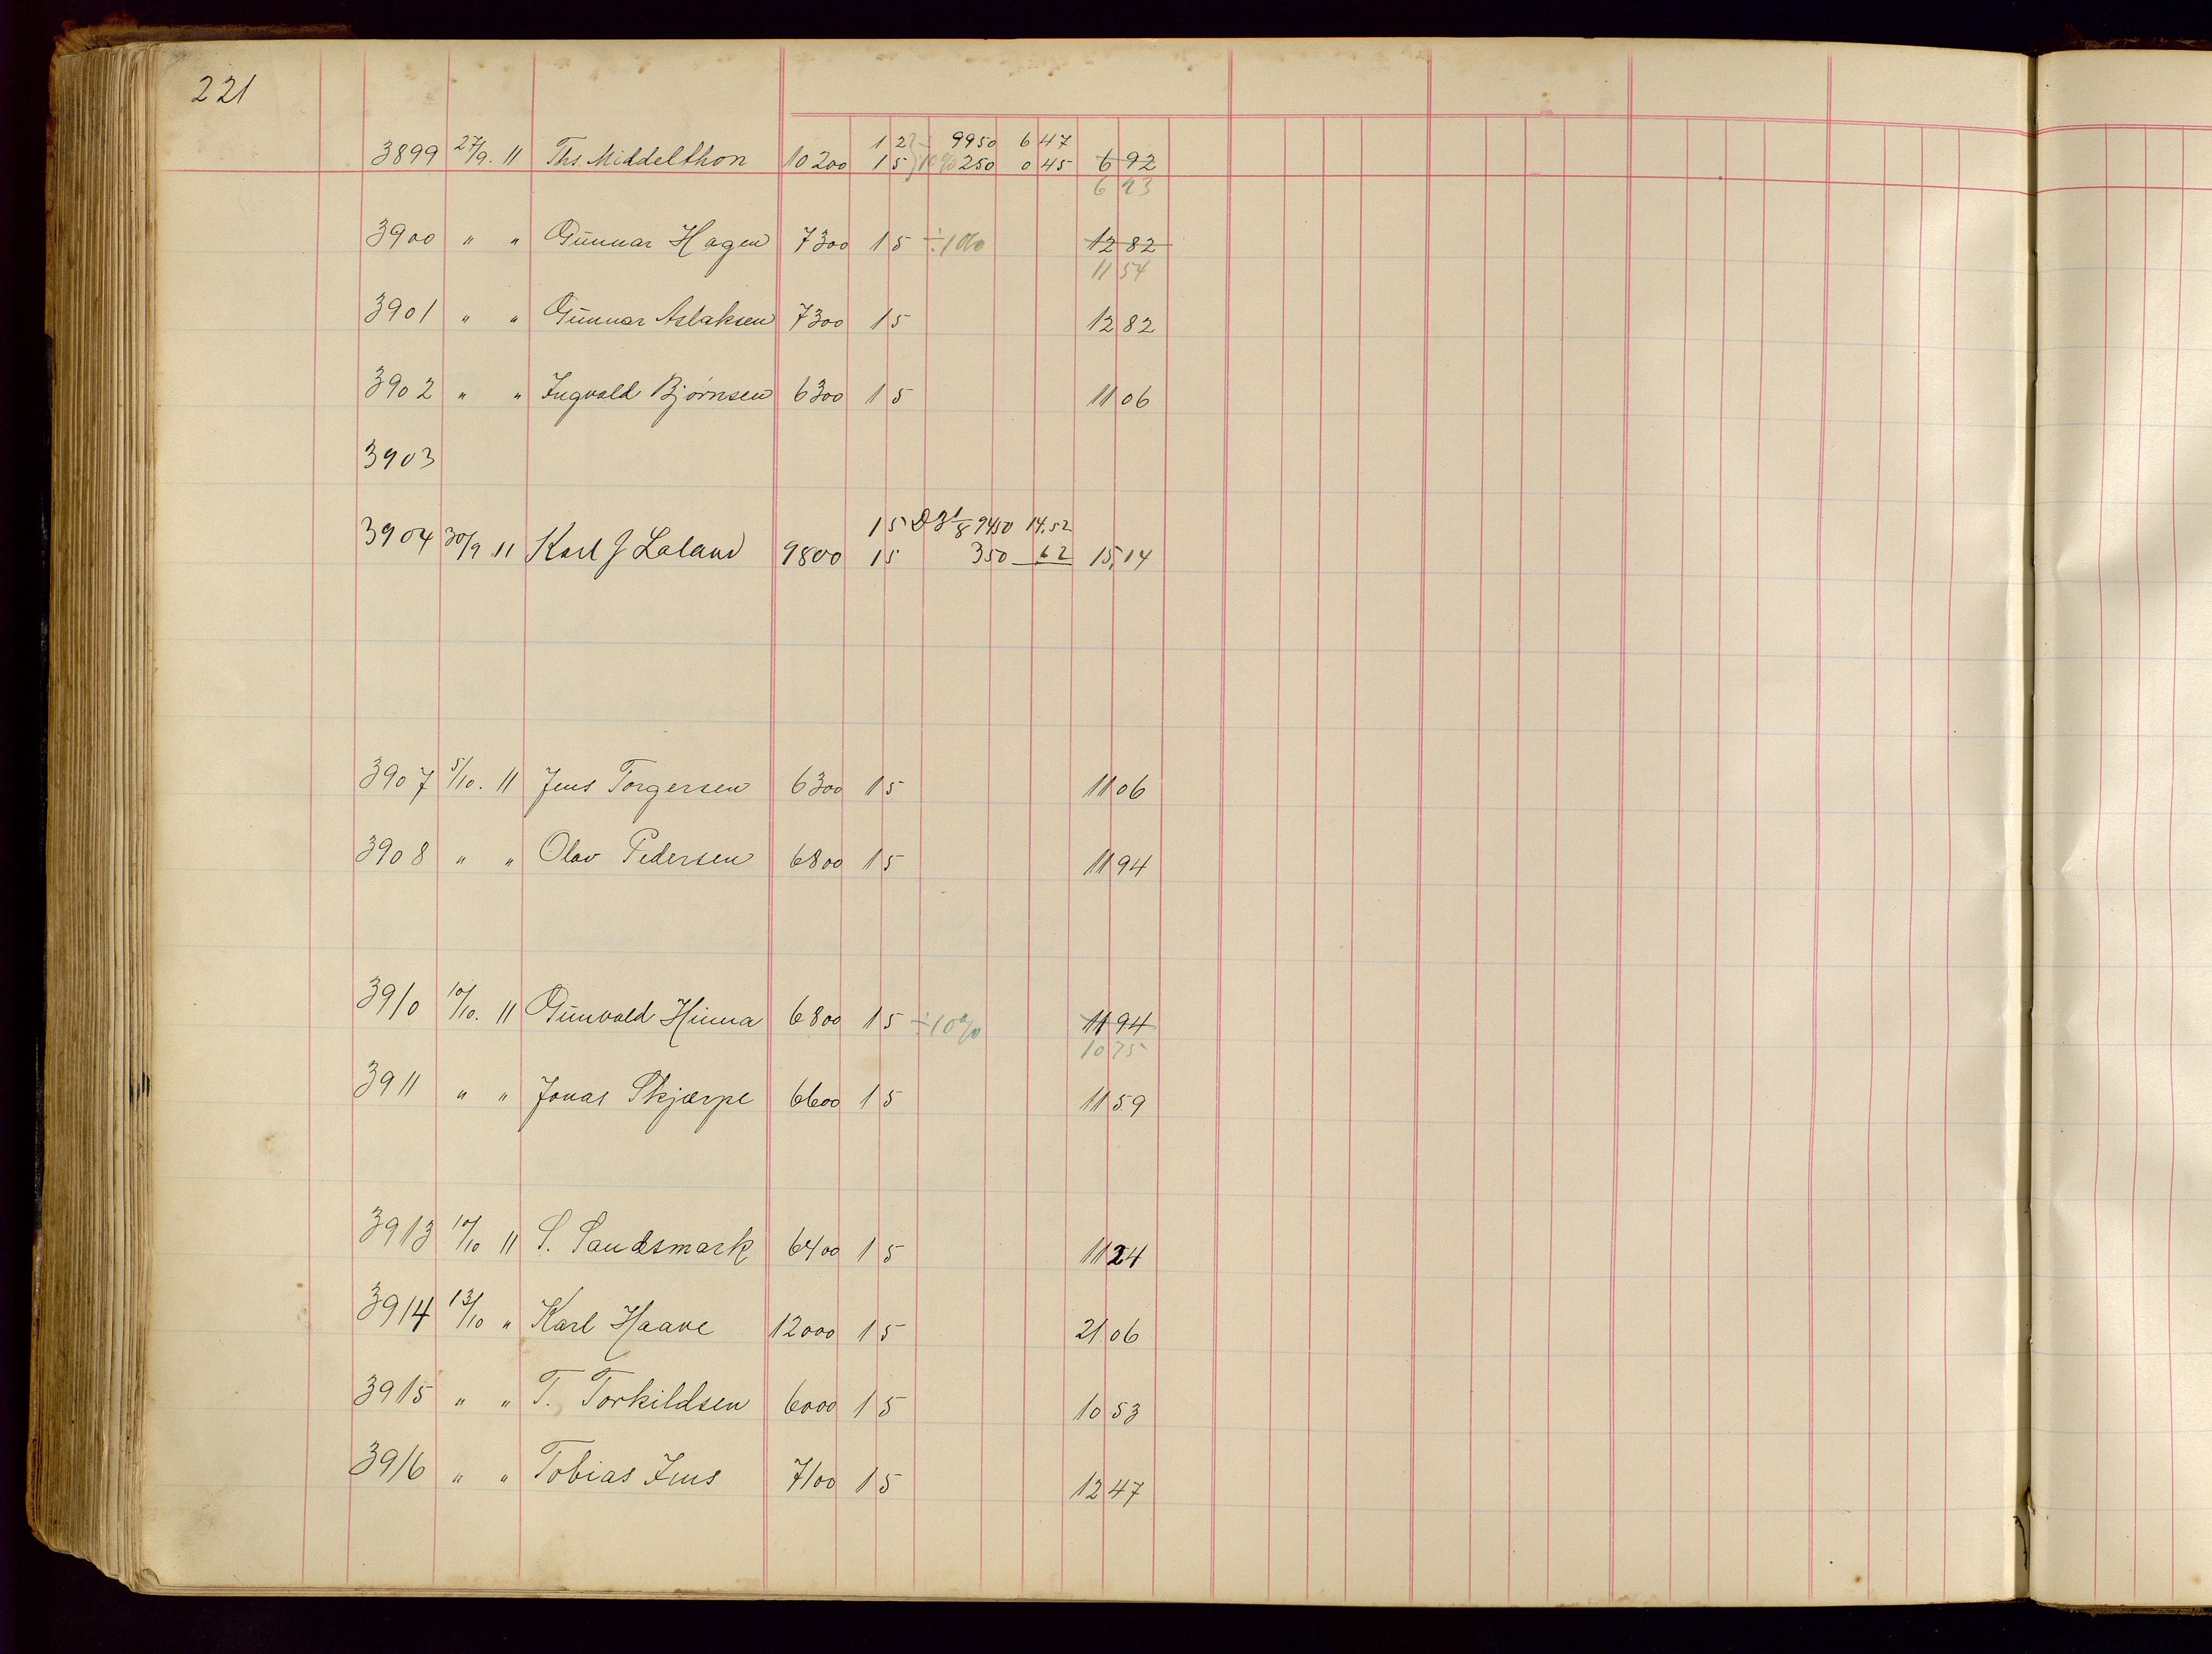 221
1 2 ÷ 9950 6 47
3899 27/9. 11 Ths. Middelthon 10200 1 5 10% 250 0 45 6 92
6 23
3900 " " Gunnar Hagen 7300 1 5 ÷10% 12 82
11 54
3901 " " Gunnar Aslaksen 7300 1 5 12 82
3902 " " Ingvald Bjørnsen 6300 1 5 11 06
3903
1 5 9450 14.52
3904 30/9 11 Karl J Laland 9800 1 5 350 62 15,14
3907 5/10. 11 Jens Torgersen 6300 1 5 11 06
3908 " " Olav Pedersen 6800 1 5 11 94
3910 10/10. 11 Gunvald Hinna 6800 1 5 ÷10% 11 94
10 75
3911 " " Jonas Skjærpe 6600 1 5 11 59
3913 10/10 11 S. Sandsmark 6400 1 5 11 24
3914 13/10 " Karl Haave 12000 1 5 21 06
3915 " " T. Torkildsen 6000 1 5 10 53
3916 " " Tobias 7100 1 5 12 47